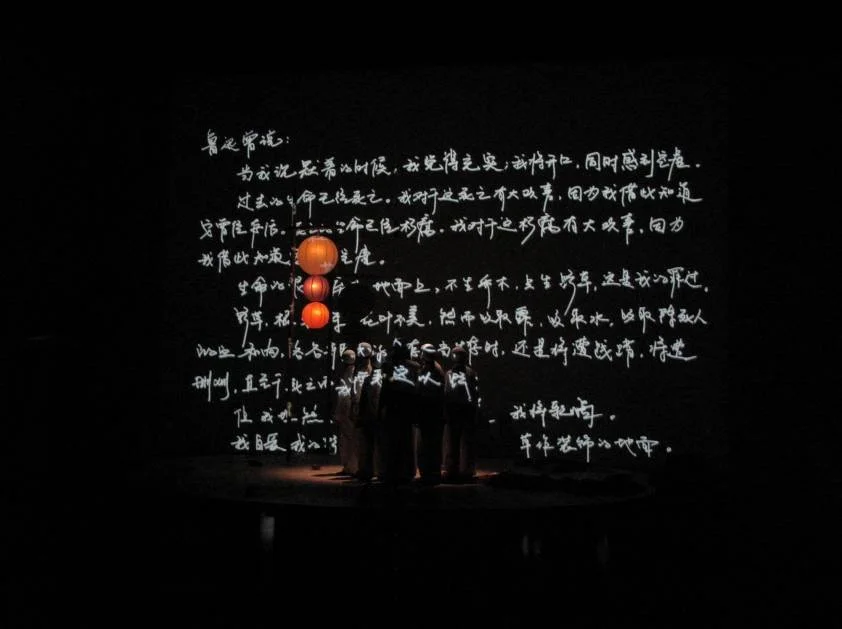 鲁迅曾说:
当我沉默着的时候,我觉得充实;我将开口,同时感到空虚。
过去的生命已经死亡。我对于这死亡有大欢喜,因为我借此知道
它曾经存活。命已经朽腐。我对于这朽腐有大欢喜,因为
我借此知道空虚。
生命的泥地面上,不生乔木,只生野草,这是我的罪过。
野草,根花叶不美,然而吸取露,吸取水,吸取陈死人
的血和肉,各各时,还是将遭践踏,将遭
删刈,直至于死亡而
但我坦然,我将歌唱。
我自爱我的野草作装饰的地面。